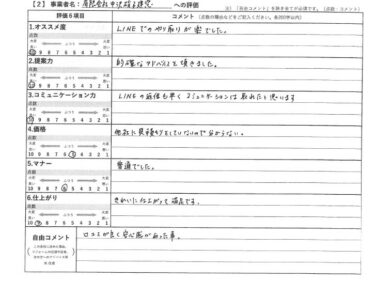 【2】事業者名： への評価
評価6項目
コメント（点数の理由などをご記入ください。各20字以内）
注）「自由コメント」を除き全てが必須です。（点数・コメント）
1.オススメ度
点数
大変良い ふつう 大変悪い
10 9 8 7 6 5 4 3 2 1
LINEでのやり取りが楽でした。
2.提案力
点数
大変良い ふつう 大変悪い
10 9 8 7 6 5 4 3 2 1
的確なアドバイスを頂きました。
3.コミュニケーション力
点数
大変良い ふつう 大変悪い
10 9 8 7 6 5 4 3 2 1
LINEの返信も早くコミュニケーションは取れたと思います
4.価格
点数
大変良い ふつう 大変悪い
10 9 8 7 6 5 4 3 2 1
他社に見積りをしていないので分からない。
5.マナー
点数
大変良い ふつう 大変悪い
10 9 8 7 6 5 4 3 2 1
普通でした。
6.仕上がり
点数
大変良い ふつう 大変悪い
10 9 8 7 6 5 4 3 2 1
きれいに仕上がって満足です。
自由コメント
口コミが良く安心感があった事。